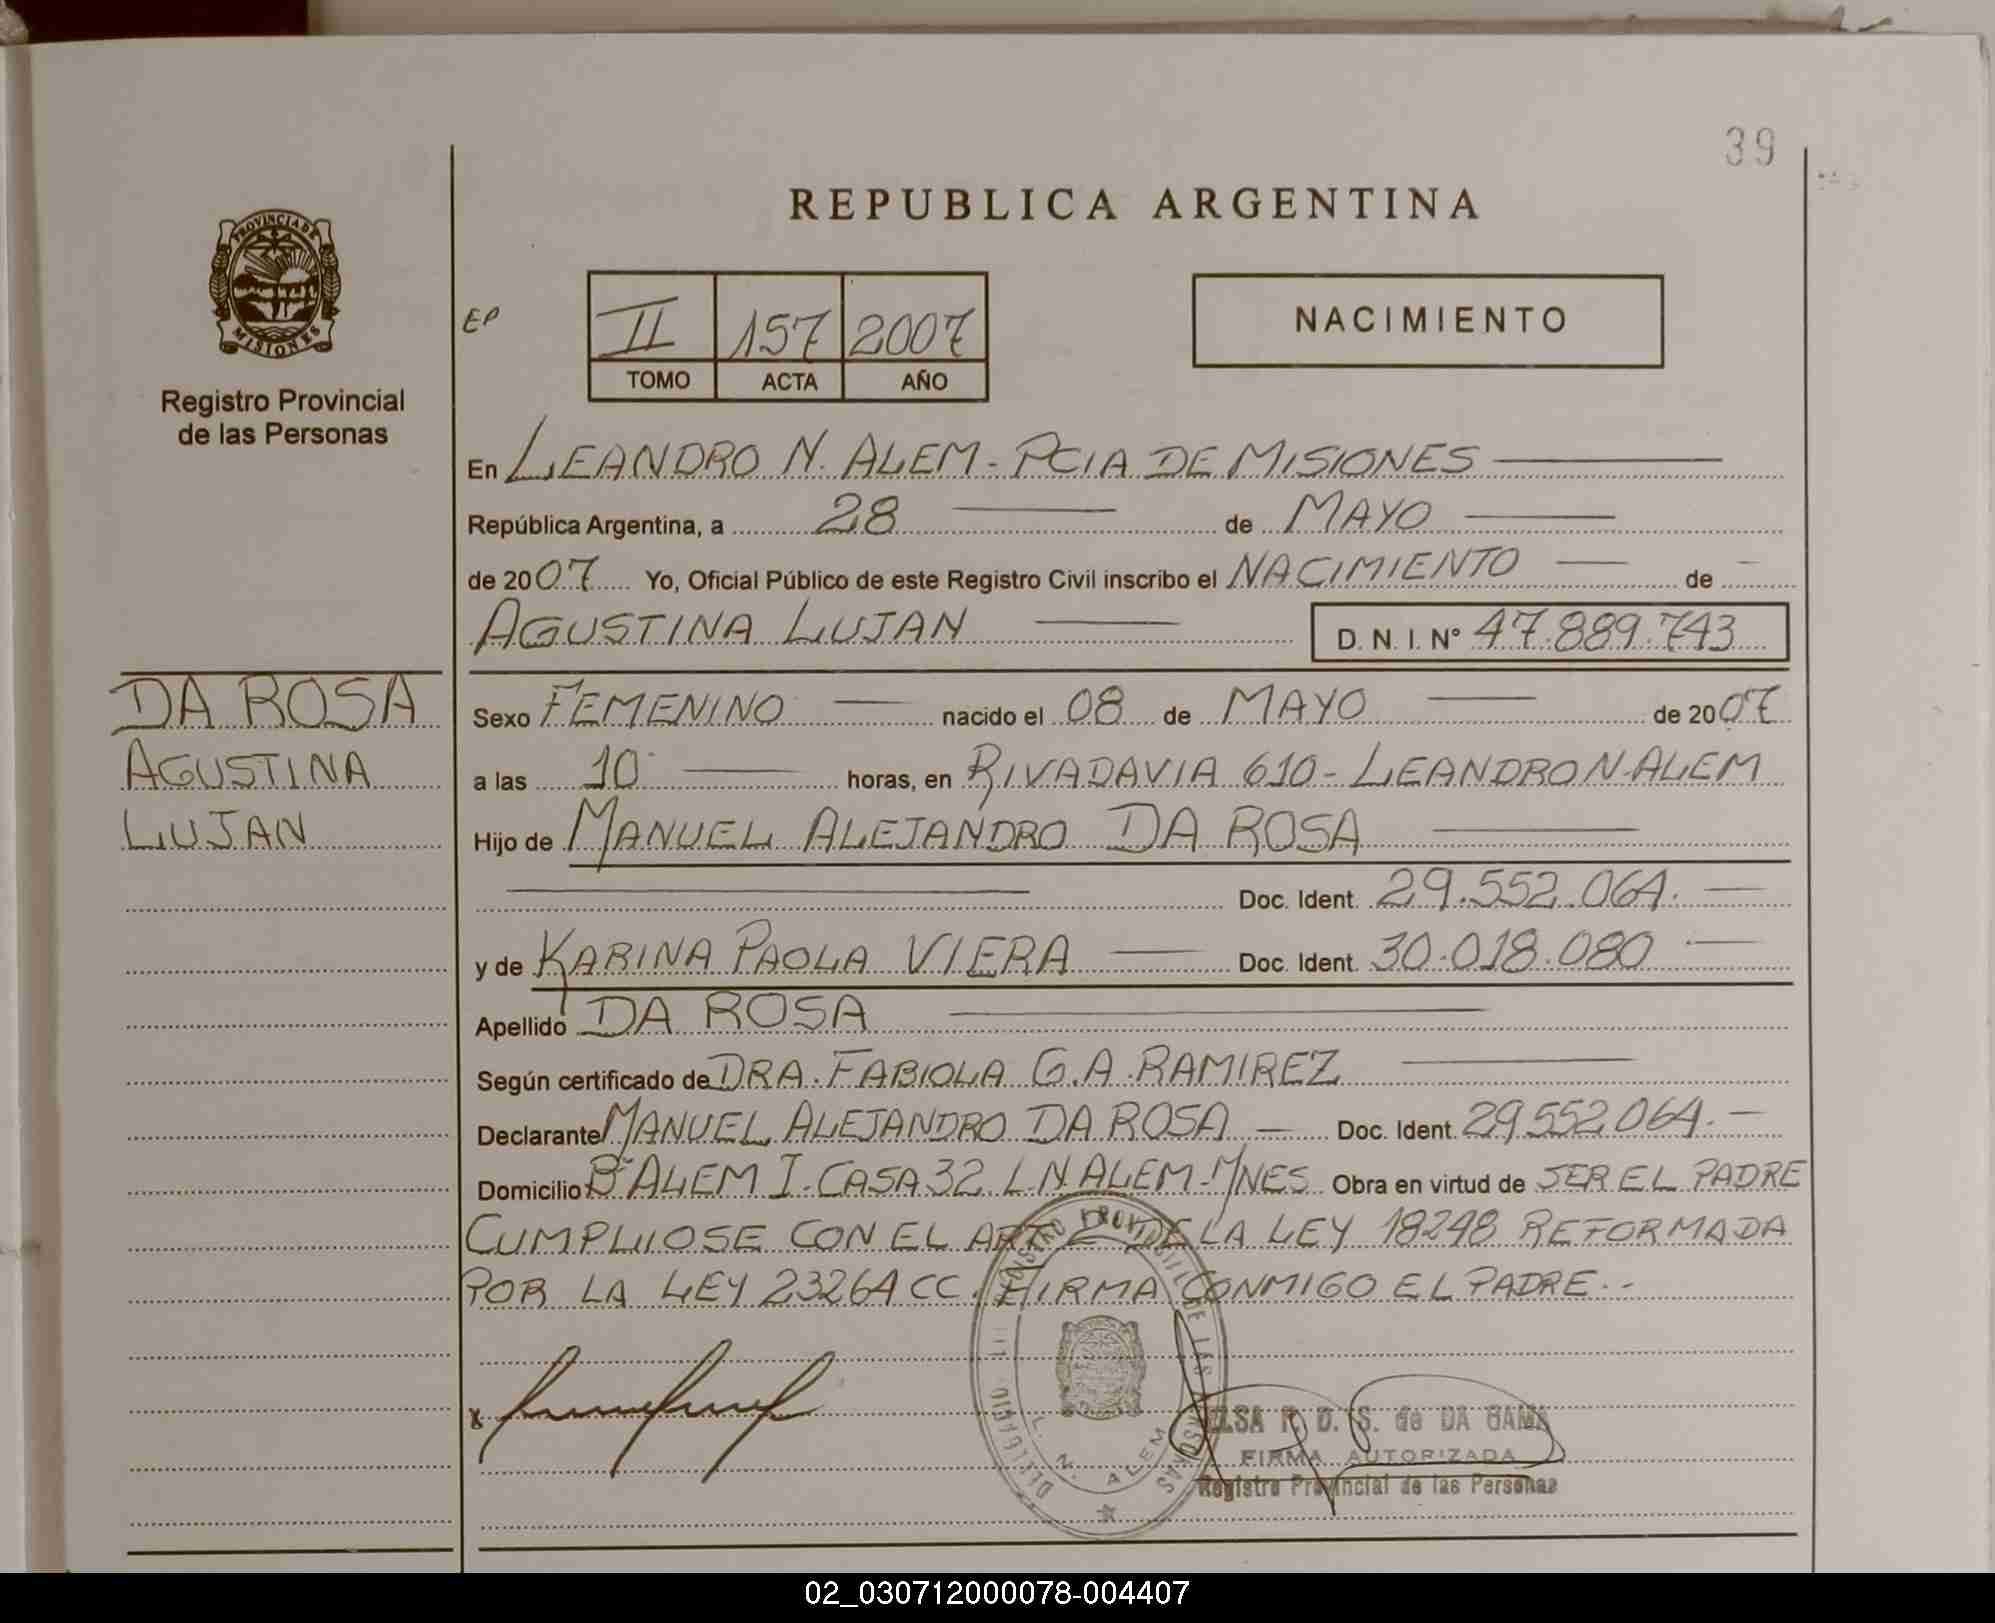 39
REPUBLICA ARGENTINA
PROVINCIA DE
MISIONES
Registro Provincial
de las Personas
EP
II 157 2007
TOMO ACTA AÑO
NACIMIENTO
En LEANDRO N. ALEM - PCIA DE MISIONES
República Argentina, a 28 de MAYO
de 2007 Yo, Oficial Público de este Registro Civil inscribo el NACIMIENTO de
AGUSTINA LUJAN D. N. I. Nº 47.889.743
DA ROSA
AGUSTINA
LUJAN
Sexo FEMENINO nacido el 08 de MAYO de 2007
a las 10 horas, en RIVADAVIA 610 - LEANDRO N. ALEM
Hijo de MANUEL ALEJANDRO DA ROSA
Doc. Ident. 29.552.064.
y de KARINA PAOLA VIERA Doc. Ident. 30.018.080
Apellido DA ROSA
Según certificado de DRA. FABIOLA G.A. RAMIREZ
Declarante MANUEL ALEJANDRO DA ROSA Doc. Ident. 29.552.064.
Domicilio Bº ALEM I - CASA 32 L.N ALEM - MNES Obra en virtud de SER EL PADRE
CUMPLIOSE CON EL ART 2 DE LA LEY 18248 REFORMADA
POR LA LEY 23264 CC. FIRMA CONMIGO EL PADRE.-
x
L. N. ALEM
D. S. de DA GAMA
FIRMA AUTORIZADA
Registro Provincial de las Personas
02_030712000078-004407